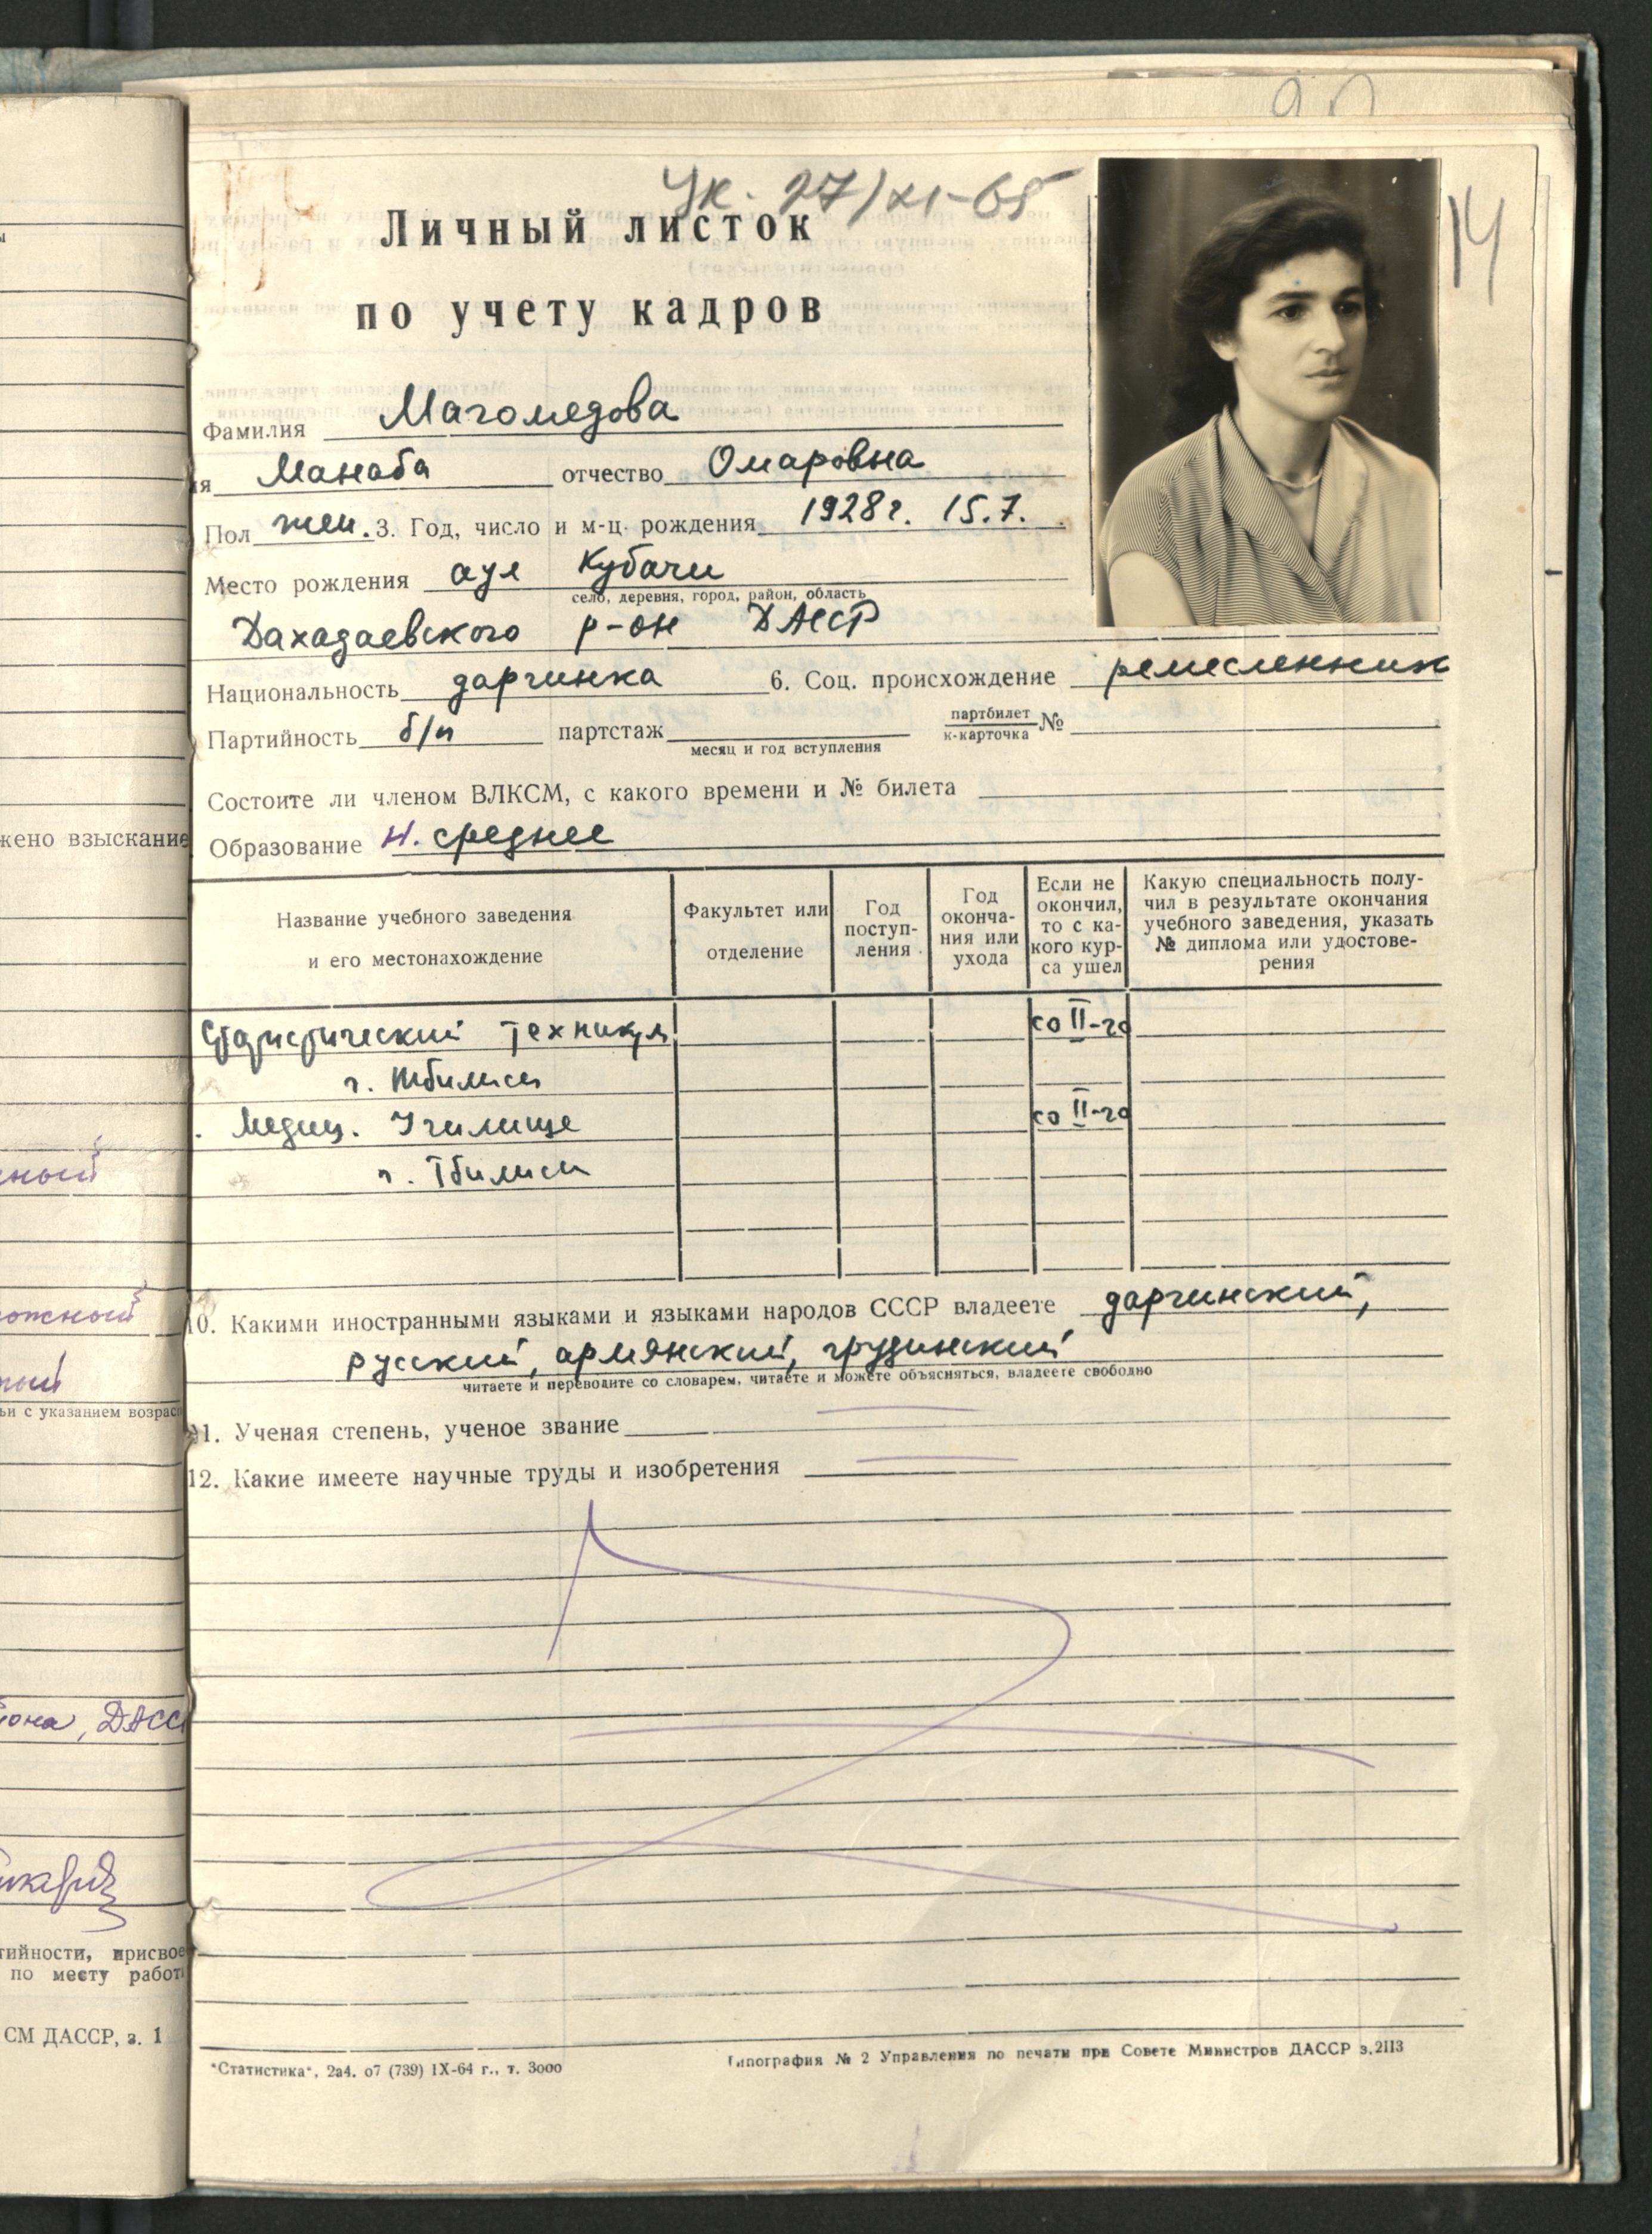 ук. 27/XI-65
14
Личный листок
по учету кадров
Фамилия Магомедова
я Манаба отчество Омаровна
Пол жен. 3. Год, число и м-ц рождения 1928г. 15.7.
Место рождения аул Кубачи
село, деревня, город, район, область
Дахадаевского р-он ДАССР
Национальность даргинка 6. Соц. происхождение ремесленник
Партийность б/п партстаж партбилет к-карточка №
месяц и год вступления
Состоите ли членом ВЛКСМ, с какого времени и № билета
Образование н. среднее
Название учебного заведения и его местонахождение
Факультет или отделение
Год поступ-ления
Год оконча-ния или ухода
Если не окончил, то с ка-кого кур-са ушел
Какую специальность полу-чил в результате окончания учебного заведения, указать № диплома или удостове-рения
Статистический техникум со II-го
г. Тбилиси
Медиц. Училище со II-го
г. Тбилиси
10. Какими иностранными языками и языками народов СССР владеете даргинский,
русский, армянский, грузинский
читаете и переводите со словарем, читаете и можете объясняться, владеете свободно
11. Ученая степень, ученое звание
12. Какие имеете научные труды и изобретения
"Статистика", 2а4. о7 (739) IX-64 г., т. 3000
Типография № 2 Управления по печати при Совете Министров ДАССР з.2113
жено взыскание
ный
ожный
ный
ьи с указанием возрас
она, ДАСС
тийности, присвое
по месту работ
СМ ДАССР, з. 1